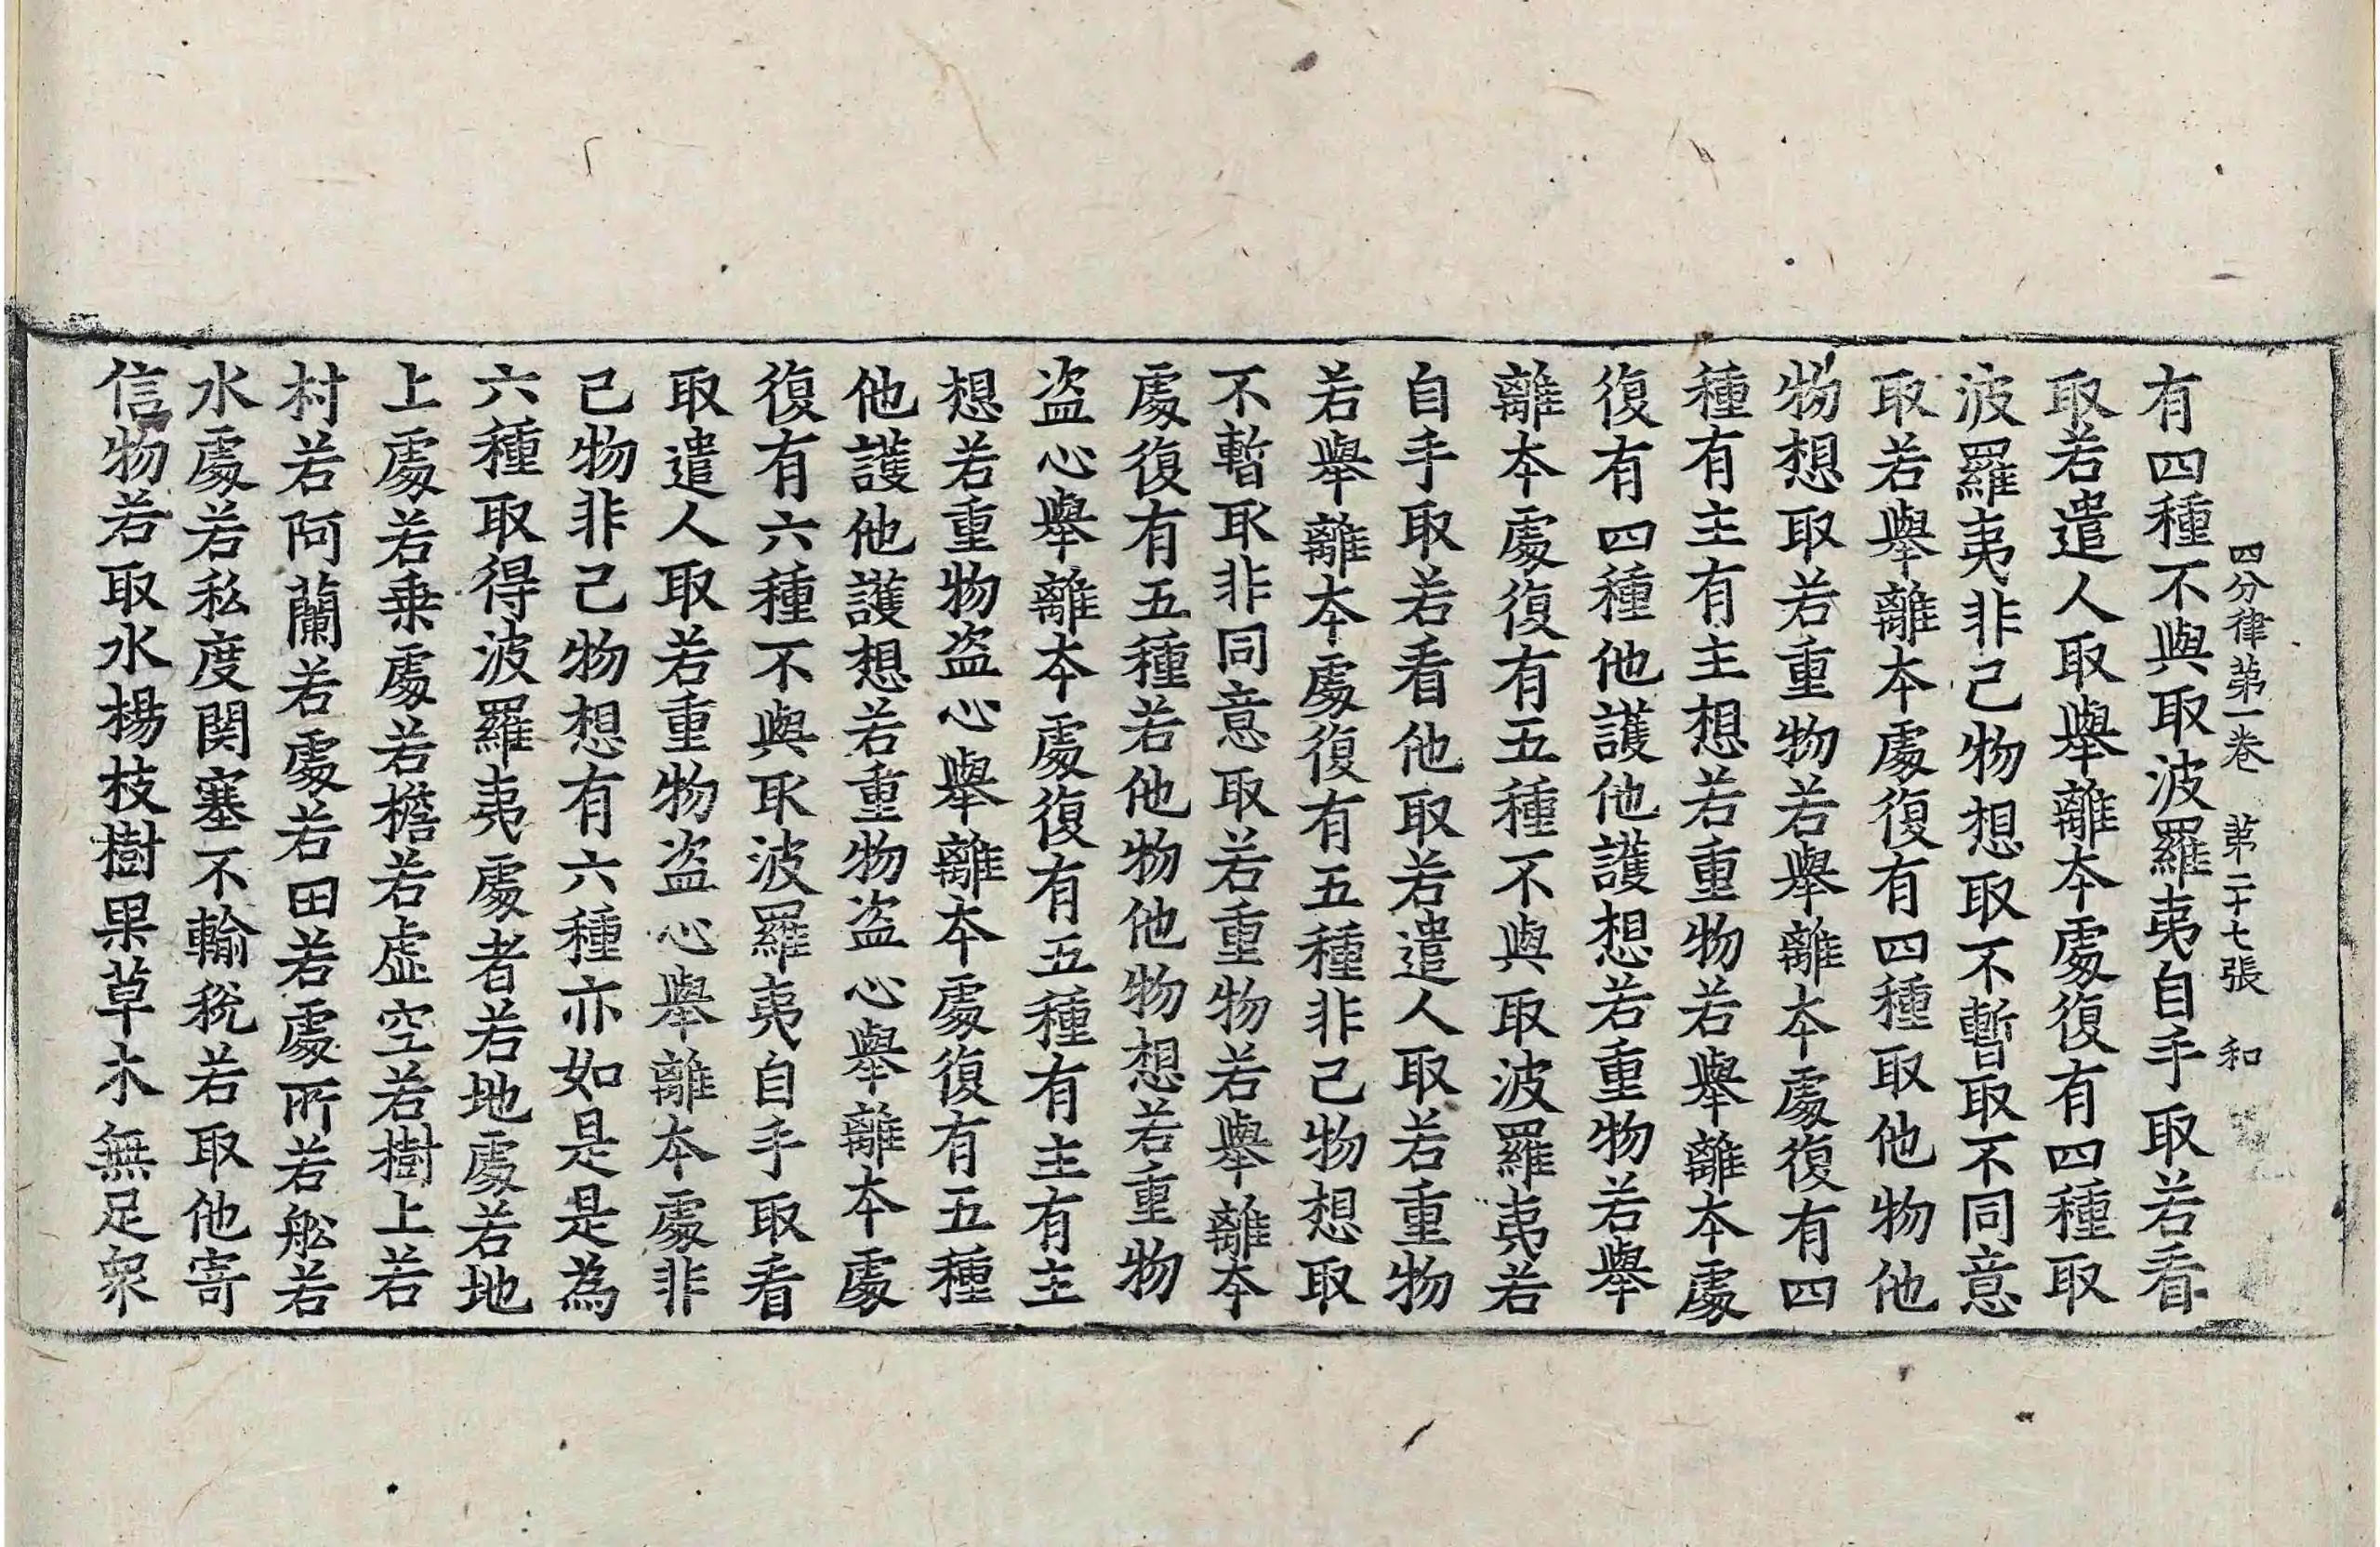 四分律苐一卷　苐二十七張　和
有四種不與取波羅夷自手取若看
取若遣人取舉離本處復有四種取
波羅夷非己物想取不暫取不同意
取若舉離本處復有四種取他物他
物想取若重物若舉離本處復有四
種有主有主想若重物若舉離本處
復有四種他護他護想若重物若舉
離本處復有五種不與取波羅夷若
自手取若看他取若遣人取若重物
若舉離本處復有五種非己物想取
不暫取非同意取若重物若舉離本
處復有五種若他物他物想若重物
盜心舉離本處復有五種有主有主
想若重物盜心舉離本處復有五種
他護他護想若重物盜心舉離本處
復有六種不與取波羅夷自手取看
取遣人取若重物盜心舉離本處非
己物非己物想有六種亦如是是為
六種取得波羅夷處者若地處若地
上處若乗處若檐若虛空若樹上若
村若阿蘭若處若田若處所若舩若
水處若私度関塞不輸稅若取他寄
信物若取水楊枝樹果草木無足衆